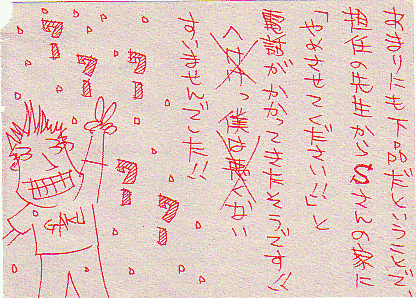 あまりにも下品だということで、
担任の先生からSさんの家に
「やめさせてください!!」と
電話がかかってきたそうです!!
すいませんでした!!